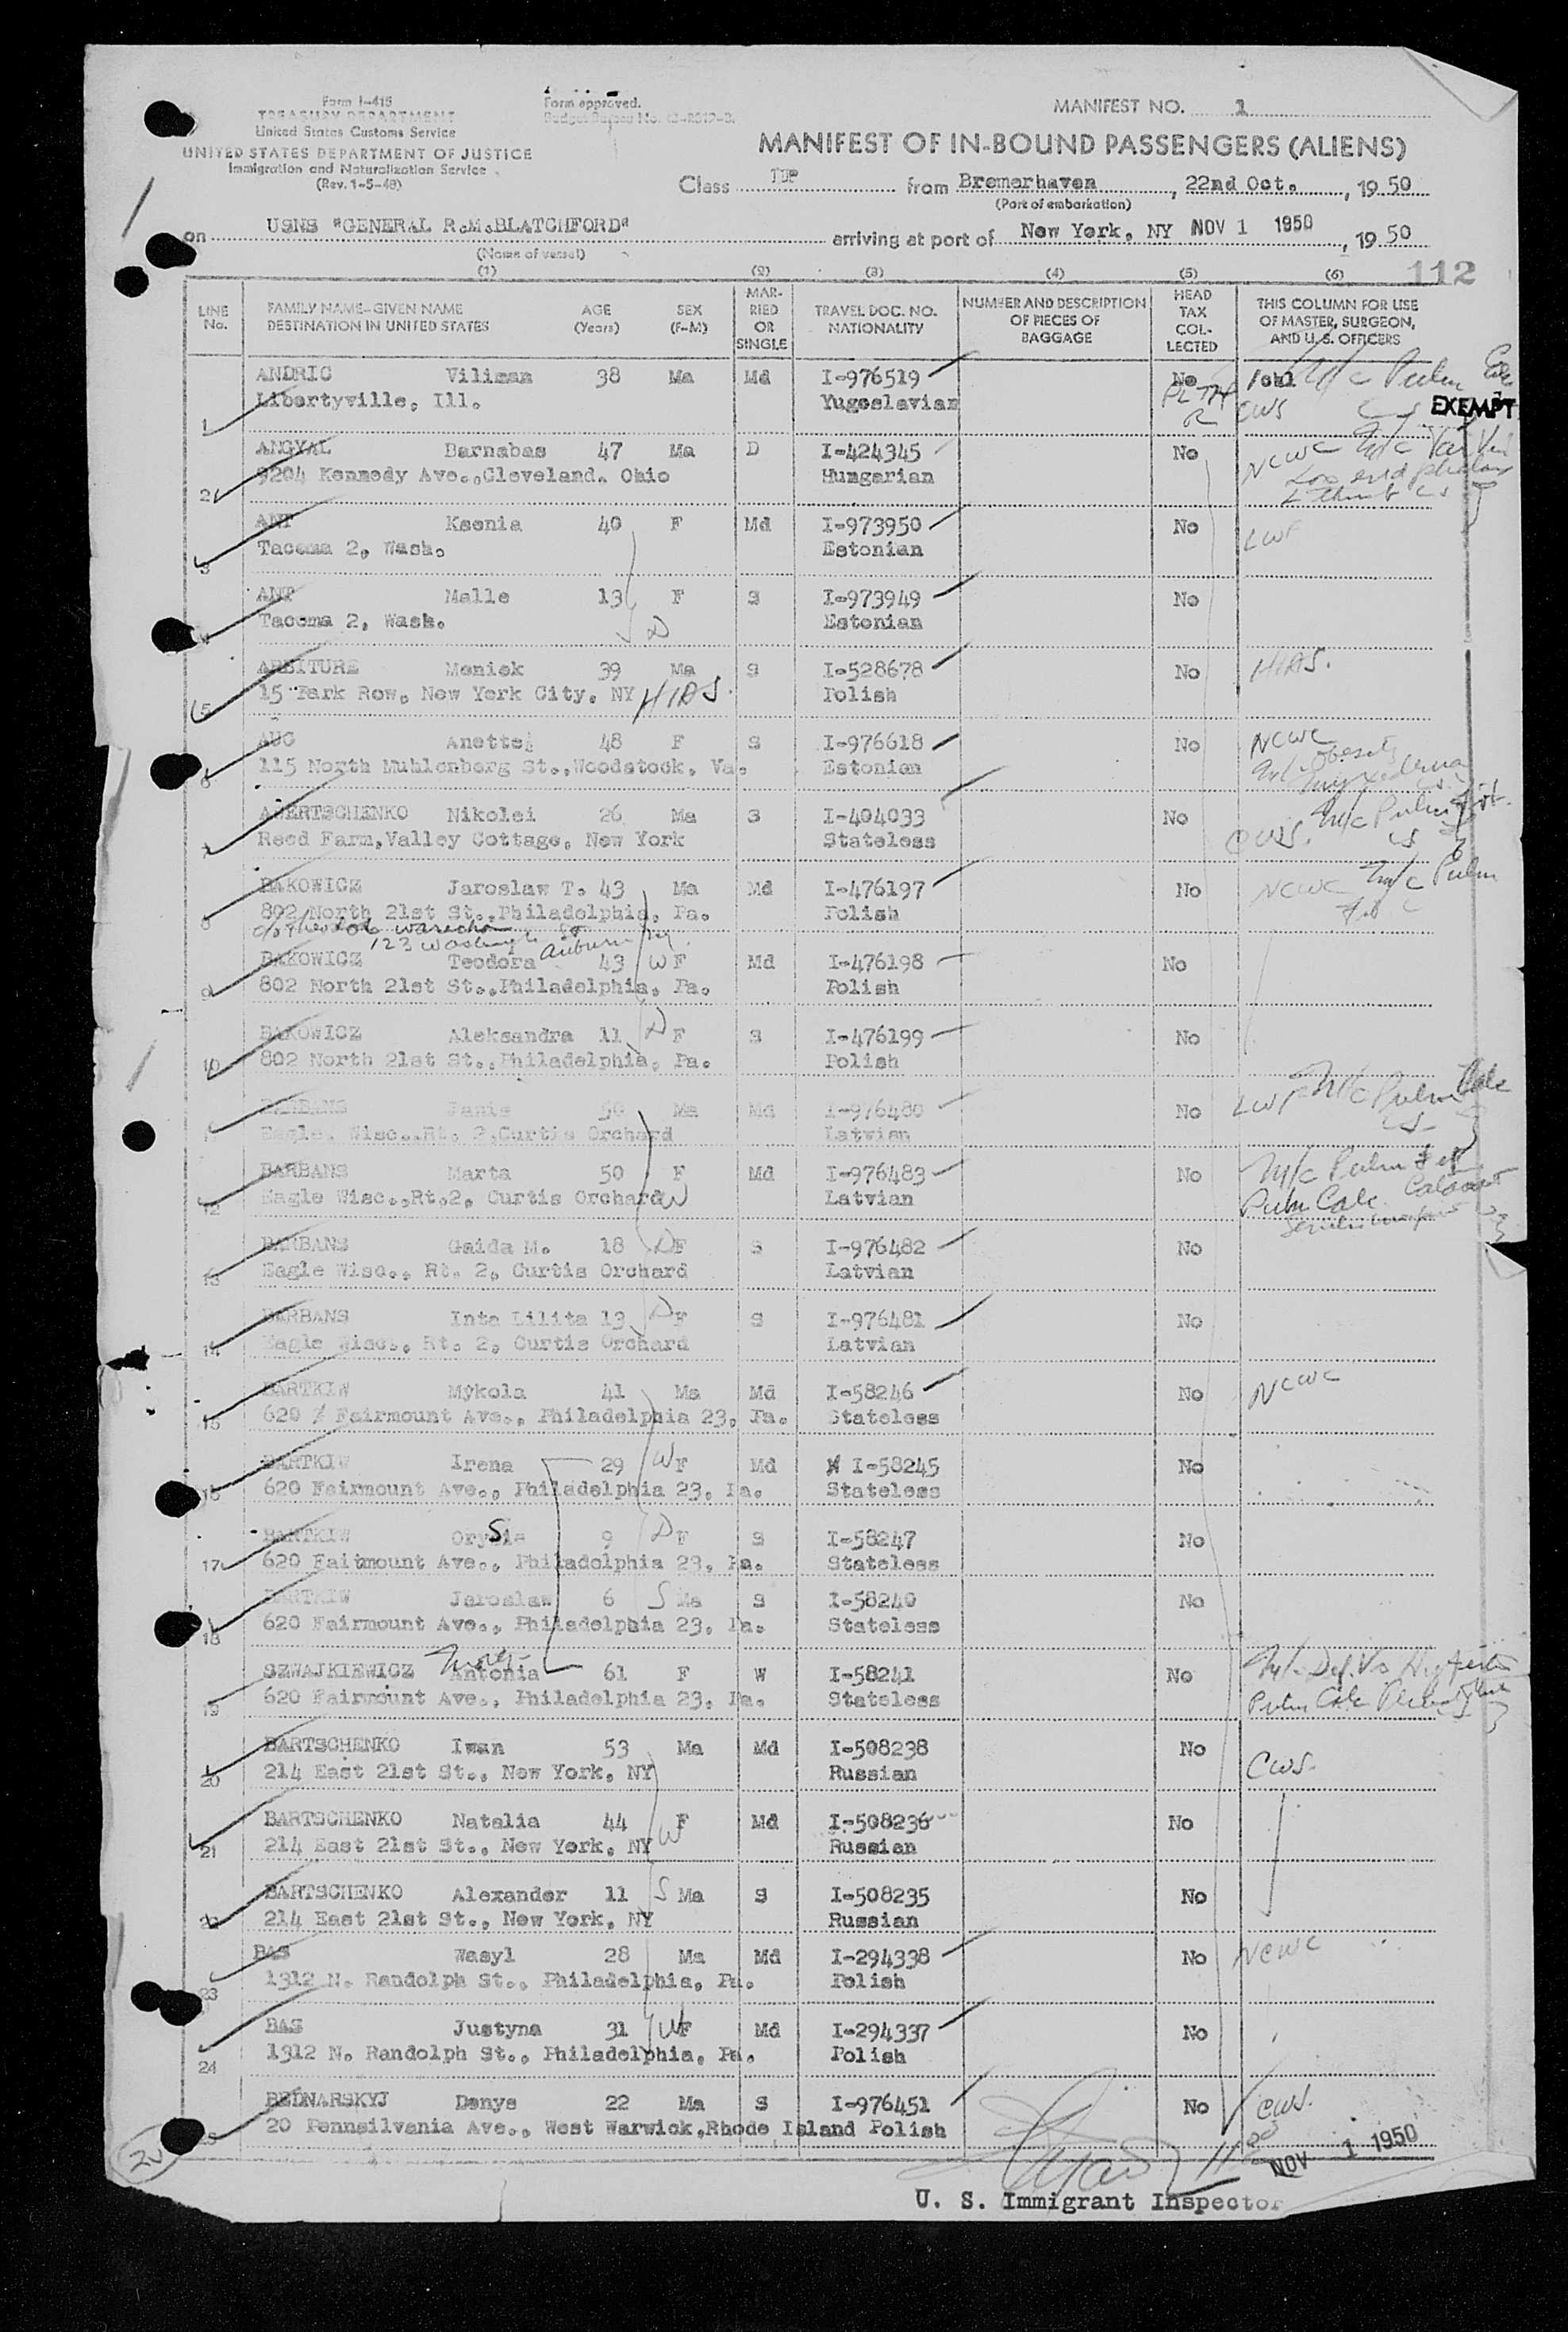 Form I-415
TREASURY DEPARTMENT
United States Customs Service
UNITED STATES DEPARTMENT OF JUSTICE
Immigration and Naturalization Service
(Rev. 1-5-48)
Form approved.
MANIFEST NO. 1
MANIFEST OF IN-BOUND PASSENGERS (ALIENS)
Class from Bremerhaven, 22nd Oct., 1950
(Port of embarkation)
on USNS "GENERAL R.M.BLATCHFORD" arriving at port of New York, NY NOV 1 1950, 1950
(Name of vessel)
(1) (2) (3) (4) (5) (6) 112
LINE No. FAMILY NAME-GIVEN NAME DESTINATION IN UNITED STATES AGE (Years) SEX (F-M) MARRIED OR SINGLE TRAVEL DOC. NO. NATIONALITY NUMBER AND DESCRIPTION OF PIECES OF BAGGAGE HEAD TAX COLLECTED THIS COLUMN FOR USE OF MASTER, SURGEON, AND U. S. OFFICERS
ANDRIC Viliman 38 Ma Md I-976519 No M/c Pulm
1 Libertyville, Ill. Yugoslavian CWS EXEMPT
ANGYAL Barnabas 47 Ma D I-424345 No NCWC M/c
2 9204 Kennedy Ave.,Cleveland. Ohio Hungarian
L thumb
ANT Ksenia 40 F Md I-973950 No LWF
3 Tacoma 2, Wash. Estonian
ANT Malle 13 F S I-973949 No
4 Tacoma 2, Wash. D Estonian
ARBITURE Moniek 39 Ma S I-528678 No HIAS.
5 15 Park Row, New York City, NY HIAS. Polish
AUG Anette 48 F S I-976618 No NCWC
6 115 North Muhlenberg St.,Woodstock, Va. Estonian obesity
myxedema
AWERTSCHENKO Nikolei 26 Ma S I-404033 No M/c Pulm
7 Reed Farm,Valley Cottage, New York Stateless CWS.
BAKOWICZ Jaroslaw T. 43 Ma Md I-476197 No NCWC M/c Pulm
8 802 North 21st St.,Philadelphia, Pa. Polish
123 Auburn
BAKOWICZ Teodora 43 W F Md I-476198 No
9 802 North 21st St.,Philadelphia, Pa. Polish
BAKOWICZ Aleksandra 11 D F S I-476199 No
10 802 North 21st St.,Philadelphia, Pa. Polish
BARBANS Janis 50 Ma Md I-976480 No LWF M/c Pulm Calc
Eagle, Wisc.,Rt. 2,Curtis Orchard Latvian
BARBANS Marta 50 F Md I-976483 No M/c Pulm
12 Eagle Wisc.,Rt.2, Curtis Orchard W Latvian Pulm Calc
BARBANS Gaida M. 18 D F S I-976482 No
13 Eagle Wisc., Rt. 2, Curtis Orchard Latvian
BARBANS Inta Lilita 13 D F S I-976481 No
14 Eagle Wisc., Rt. 2, Curtis Orchard Latvian
BARTKIW Mykola 41 Ma Md I-58246 No NCWC
15 620 Fairmount Ave., Philadelphia 23, Pa. Stateless
BARTKIW Irena 29 W F Md I-58245 No
16 620 Fairmount Ave., Philadelphia 23, Pa. Stateless
BARTKIW Orysia 9 D F S I-58247 No
17 620 Faitmount Ave., Philadelphia 23, Pa. Stateless
BARTKIW Jaroslaw 6 S Ma S I-58240 No
18 620 Fairmount Ave., Philadelphia 23, Pa. Stateless
SZWAJKIEWICZ Antonia 61 F W I-58241 No
19 620 Fairmount Ave., Philadelphia 23, Pa. Stateless Pulm Calc
BARTSCHENKO Iwan 53 Ma Md I-508238 No
20 214 East 21st St., New York, NY Russian CWS.
BARTSCHENKO Natalia 44 F Md I-508236 No
21 214 East 21st St., New York, NY W Russian
BARTSCHENKO Alexander 11 S Ma S I-508235 No
22 214 East 21st St., New York, NY Russian
BAS Wasyl 28 Ma Md I-294338 No NCWC
23 1312 N. Randolph St., Philadelphia, Pa. Polish
BAS Justyna 31 W F Md I-294337 No
24 1312 N. Randolph St., Philadelphia, Pa. Polish
BEDNARSKYJ Denys 22 Ma S I-976451 No CWS.
20 Pennsilvania Ave., West Warwick,Rhode Island Polish
NOV 1 1950
U. S. Immigrant Inspector